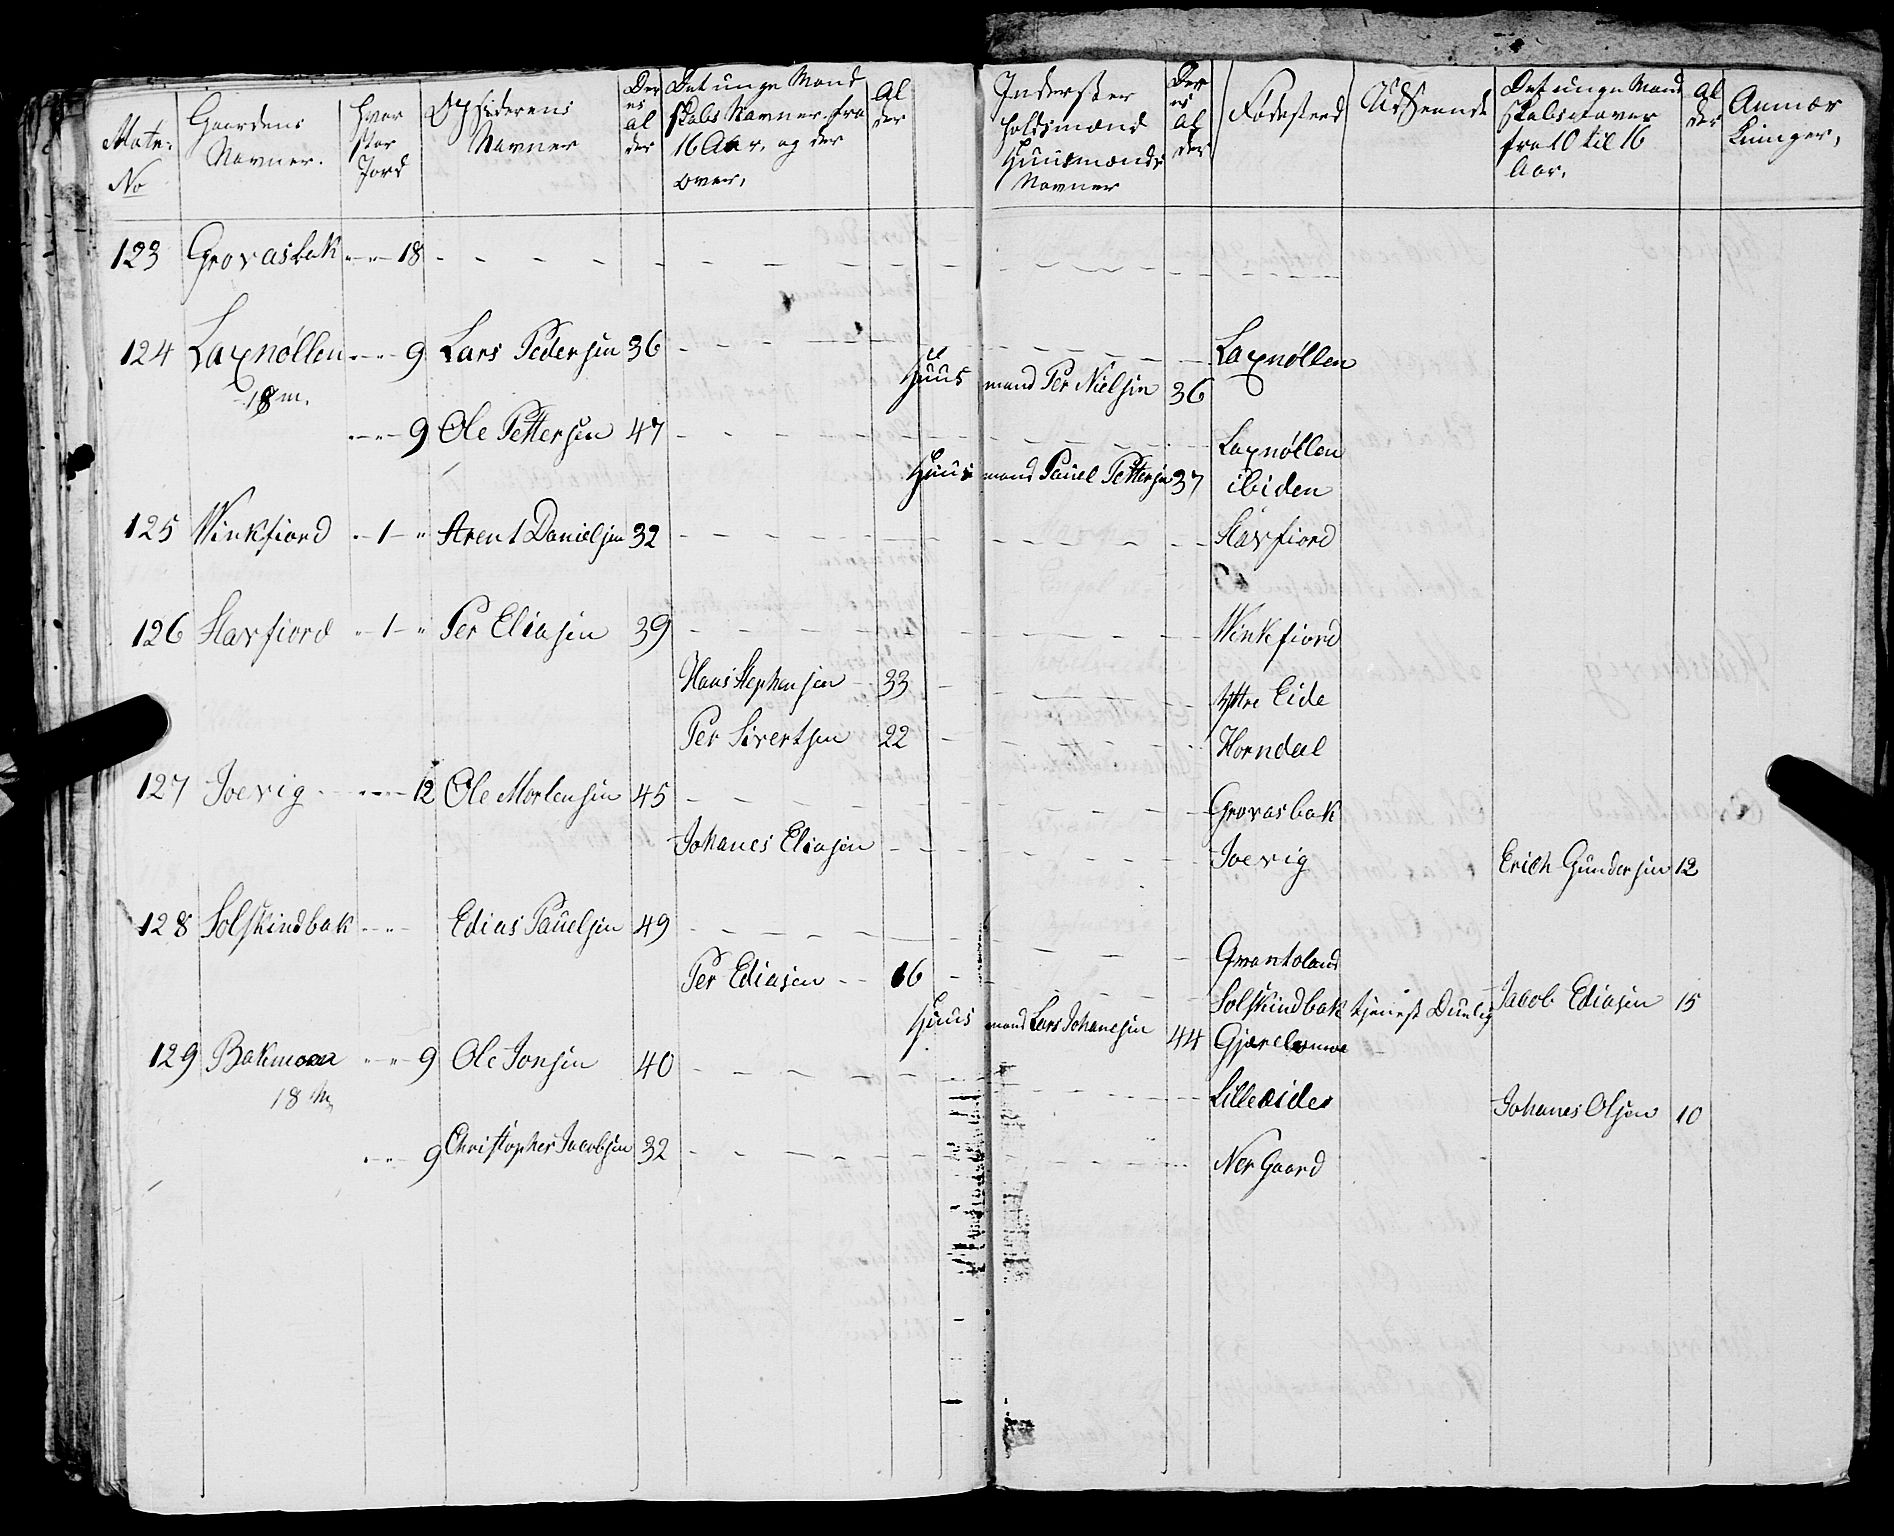 Matr: No | Gaardens Navner. | Hvor stor Jord | Opsiderens Navner | Deres alder | Det unge Mandskabs Navner, fra 16 Aar, og der over, | Alder | Inderster Holdsmænd Huusmænds Navner | Deres alder | Fødested | Udseende | Det unge Mandskabs Navner fra 10 til 16 Aar, | Alder | Anmærkninger,
123 Grovasbak " " 18
124 Laxnøllen " " 9 Lars Pedersen 36 Laxnøllen
18 m.
Huusmand Per Nielsen 36
" " 9 Ole Pettersen 47 Laxnøllen
Huusmand Pauel Pettersen 37 ibiden
125 Winkfiord " 1 " Arent Danielsen 32 Slavfiord
126 Slavfiord " 1 " Per Eliasen 39 Winkfiord
Hans Stephensen 33 Yttre Eide
Per Sivertsen 22 Horndal
127 Joevig " " 12 Ole Mortensen 45 Grovasbak
Johanes Eliasen Joevig Erich Gundersen 12
128 Solskindbak " " Edias Pauelsen 49 Qvantoland
Per Ediasen 16 Solskindbak tjenest Duelig Jacob Ediasen 15
Huusmand Lars Johanesen 44
129 Bakmoen " " 9 Ole Jonsen 40 Lilleeidet Johanes Olsen 10
18 m
" " 9 Christopher Jacobsen 32 Ner Gaard